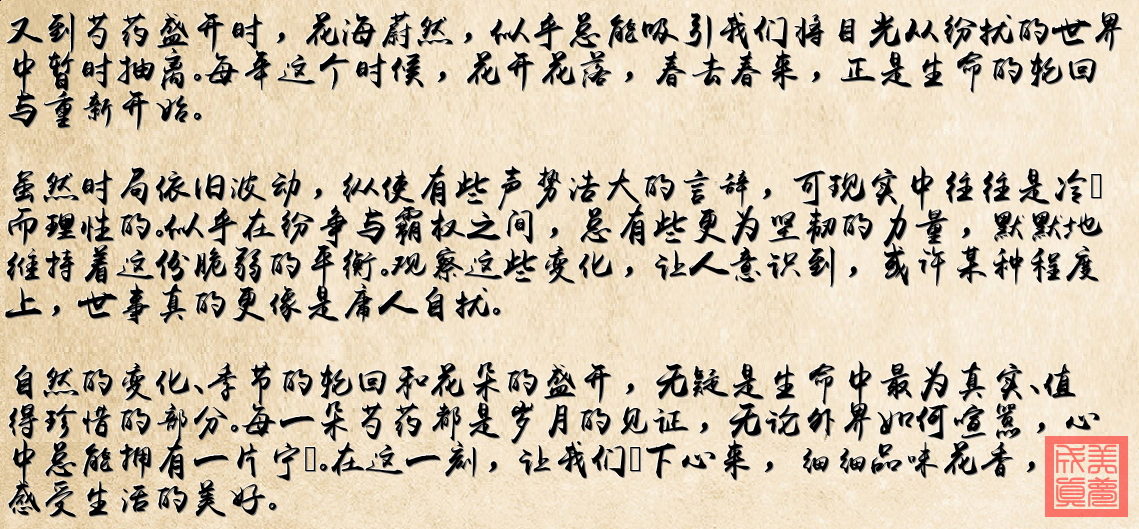 又到芍药盛开时，花海蔚然，似乎总能吸引我们将目光从纷扰的世界
中暂时抽离。每年这个时候，花开花落，春去春来，正是生命的轮回
与重新开始。
虽然时局依旧波动，纵使有些声势浩大的言辞，可现实中往往是冷
而理性的。似乎在纷争与霸权之间，总有些更为坚韧的力量，默默地
维持着这份脆弱的平衡。观察这些变化，让人意识到，或许某种程度
上，世事真的更像是庸人自扰。
自然的变化、季节的轮回和花朵的盛开，无疑是生命中最为真实、值
得珍惜的部分。每一朵芍药都是岁月的见证，无论外界如何喧嚣，心
中总能拥有一片宁。在这一刻，让我们下心来，细细品味花香，
感受生活的美好。
美梦
成真